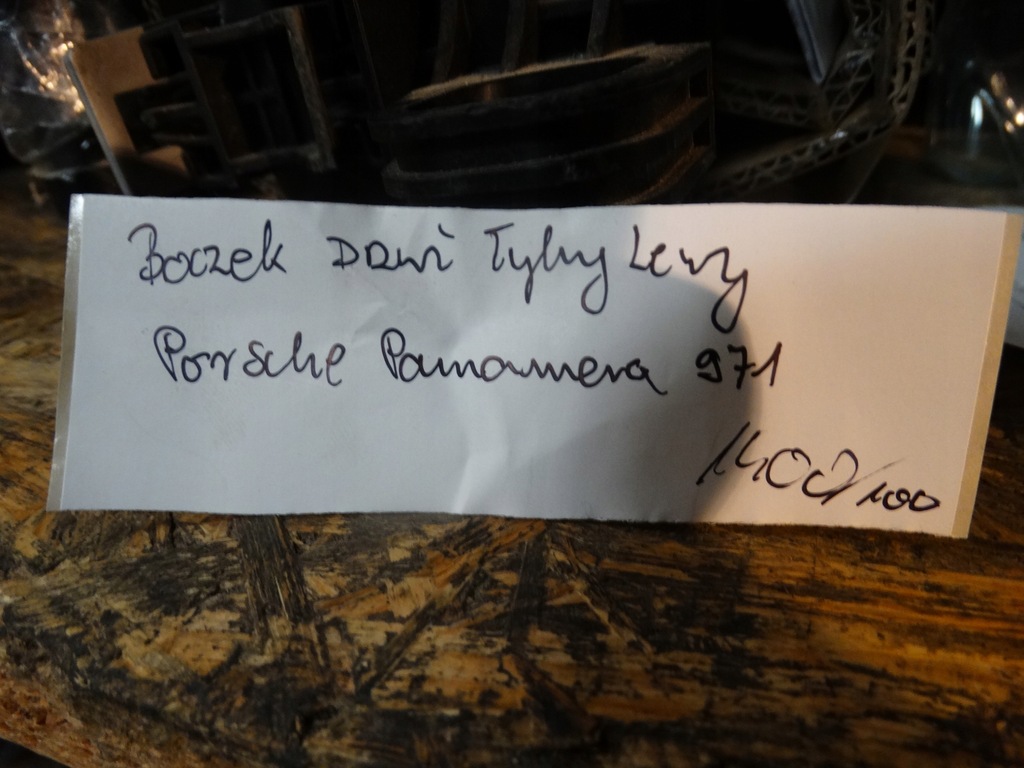 Boczek Drzwi Tylny Lewy
Porsche Panamera 971
1400/100